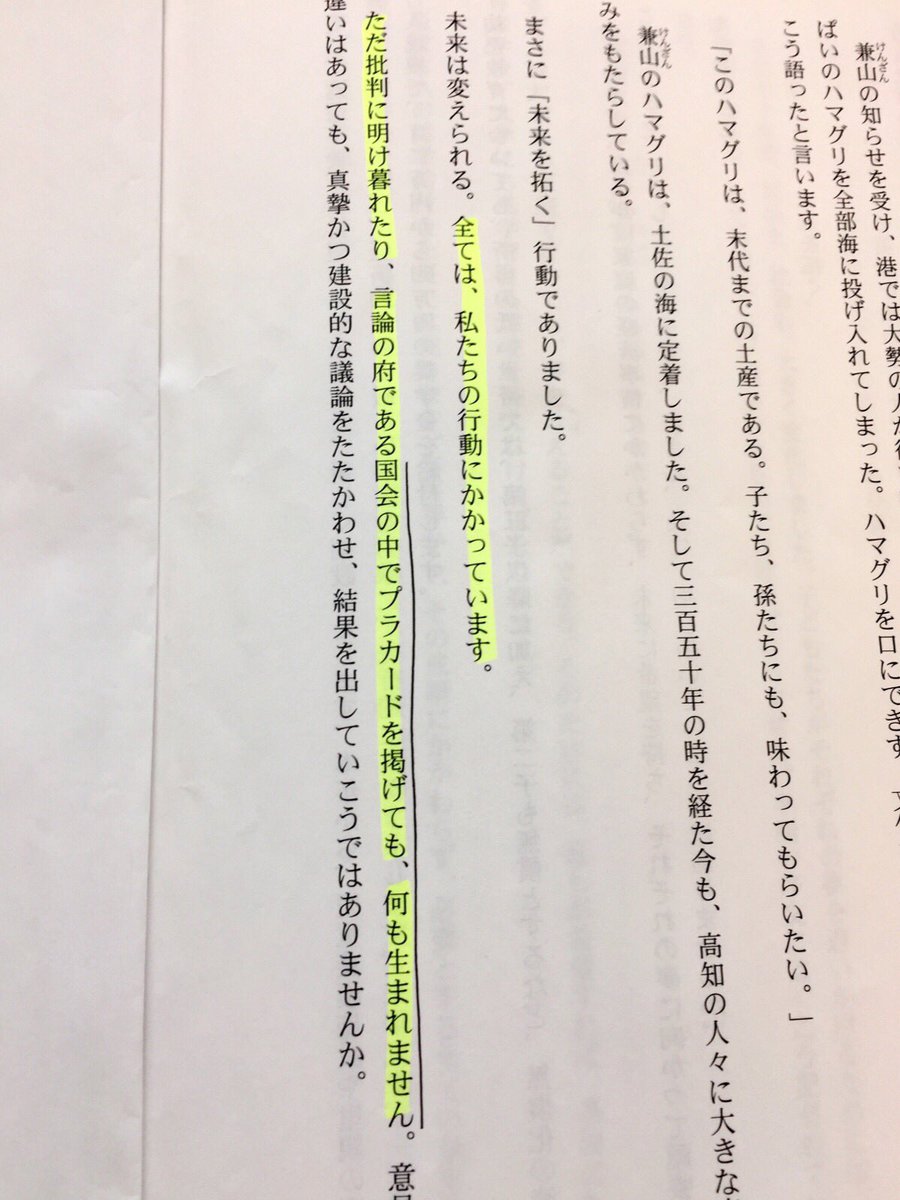 兼山の知らせを受け、港では大勢の人が
ぱいのハマグリを全部海に投げ入れてしまった。ハマグリを口にできず
こう語ったと言います。
「このハマグリは、末代までの土産である。子たち、孫たちにも、味わってもらいたい。」
兼山のハマグリは、土佐の海に定着しました。そして三百五十年の時を経た今も、高知の人々に大きな
みをもたらしている。
まさに「未来を拓く」行動でありました。
未来は変えられる。全ては、私たちの行動にかかっています。
ただ批判に明け暮れたり、言論の府である国会の中でプラカードを掲げても、何も生まれません。意見
違いはあっても、真摯かつ建設的な議論をたたかわせ、結果を出していこうではありませんか。